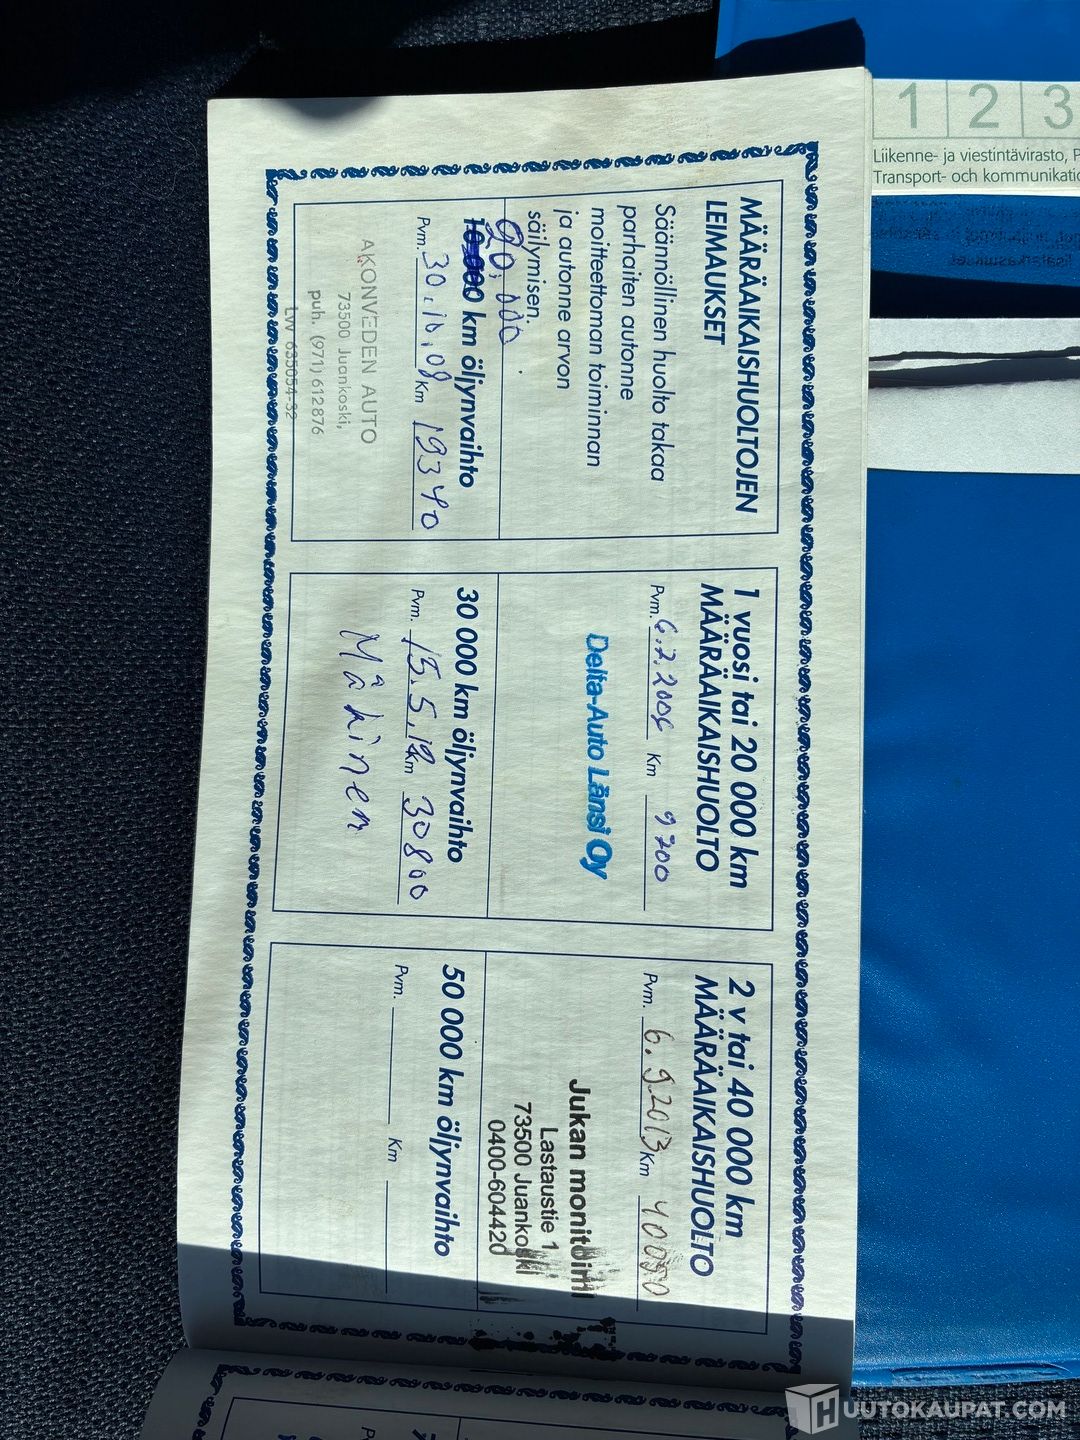 MÄÄRÄAIKAISHUOLTOJEN
LEIMAUKSET
Säännöllinen huolto takaa
parhaiten autonne
moitteettoman toiminnan
ja autonne arvon
säilymisen.
20.000
10 000 km öljynvaihto
Pvm. 30.10.08 Km 19340
AKONVEDEN AUTO
73500 Juankoski,
puh. (971) 612876
LVV 635054-32
1 vuosi tai 20 000 km
MÄÄRÄAIKAISHUOLTO
Pvm. 6.2.2006 Km 9700
Delta-Auto Länsi Oy
30 000 km öljynvaihto
Pvm. 15.5.12 Km 30800
Mäkinen
2 v tai 40 000 km
MÄÄRÄAIKAISHUOLTO
Pvm. 6.9.2013 Km 40050
Jukan monitoimi
Lastaustie 1
73500 Juankoski
0400-604420
50 000 km öljynvaihto
Pvm. Km
1 2 3
Liikenne- ja viestintävirasto, P
Transport- och kommunikatio
HUUTOKAUPAT.COM